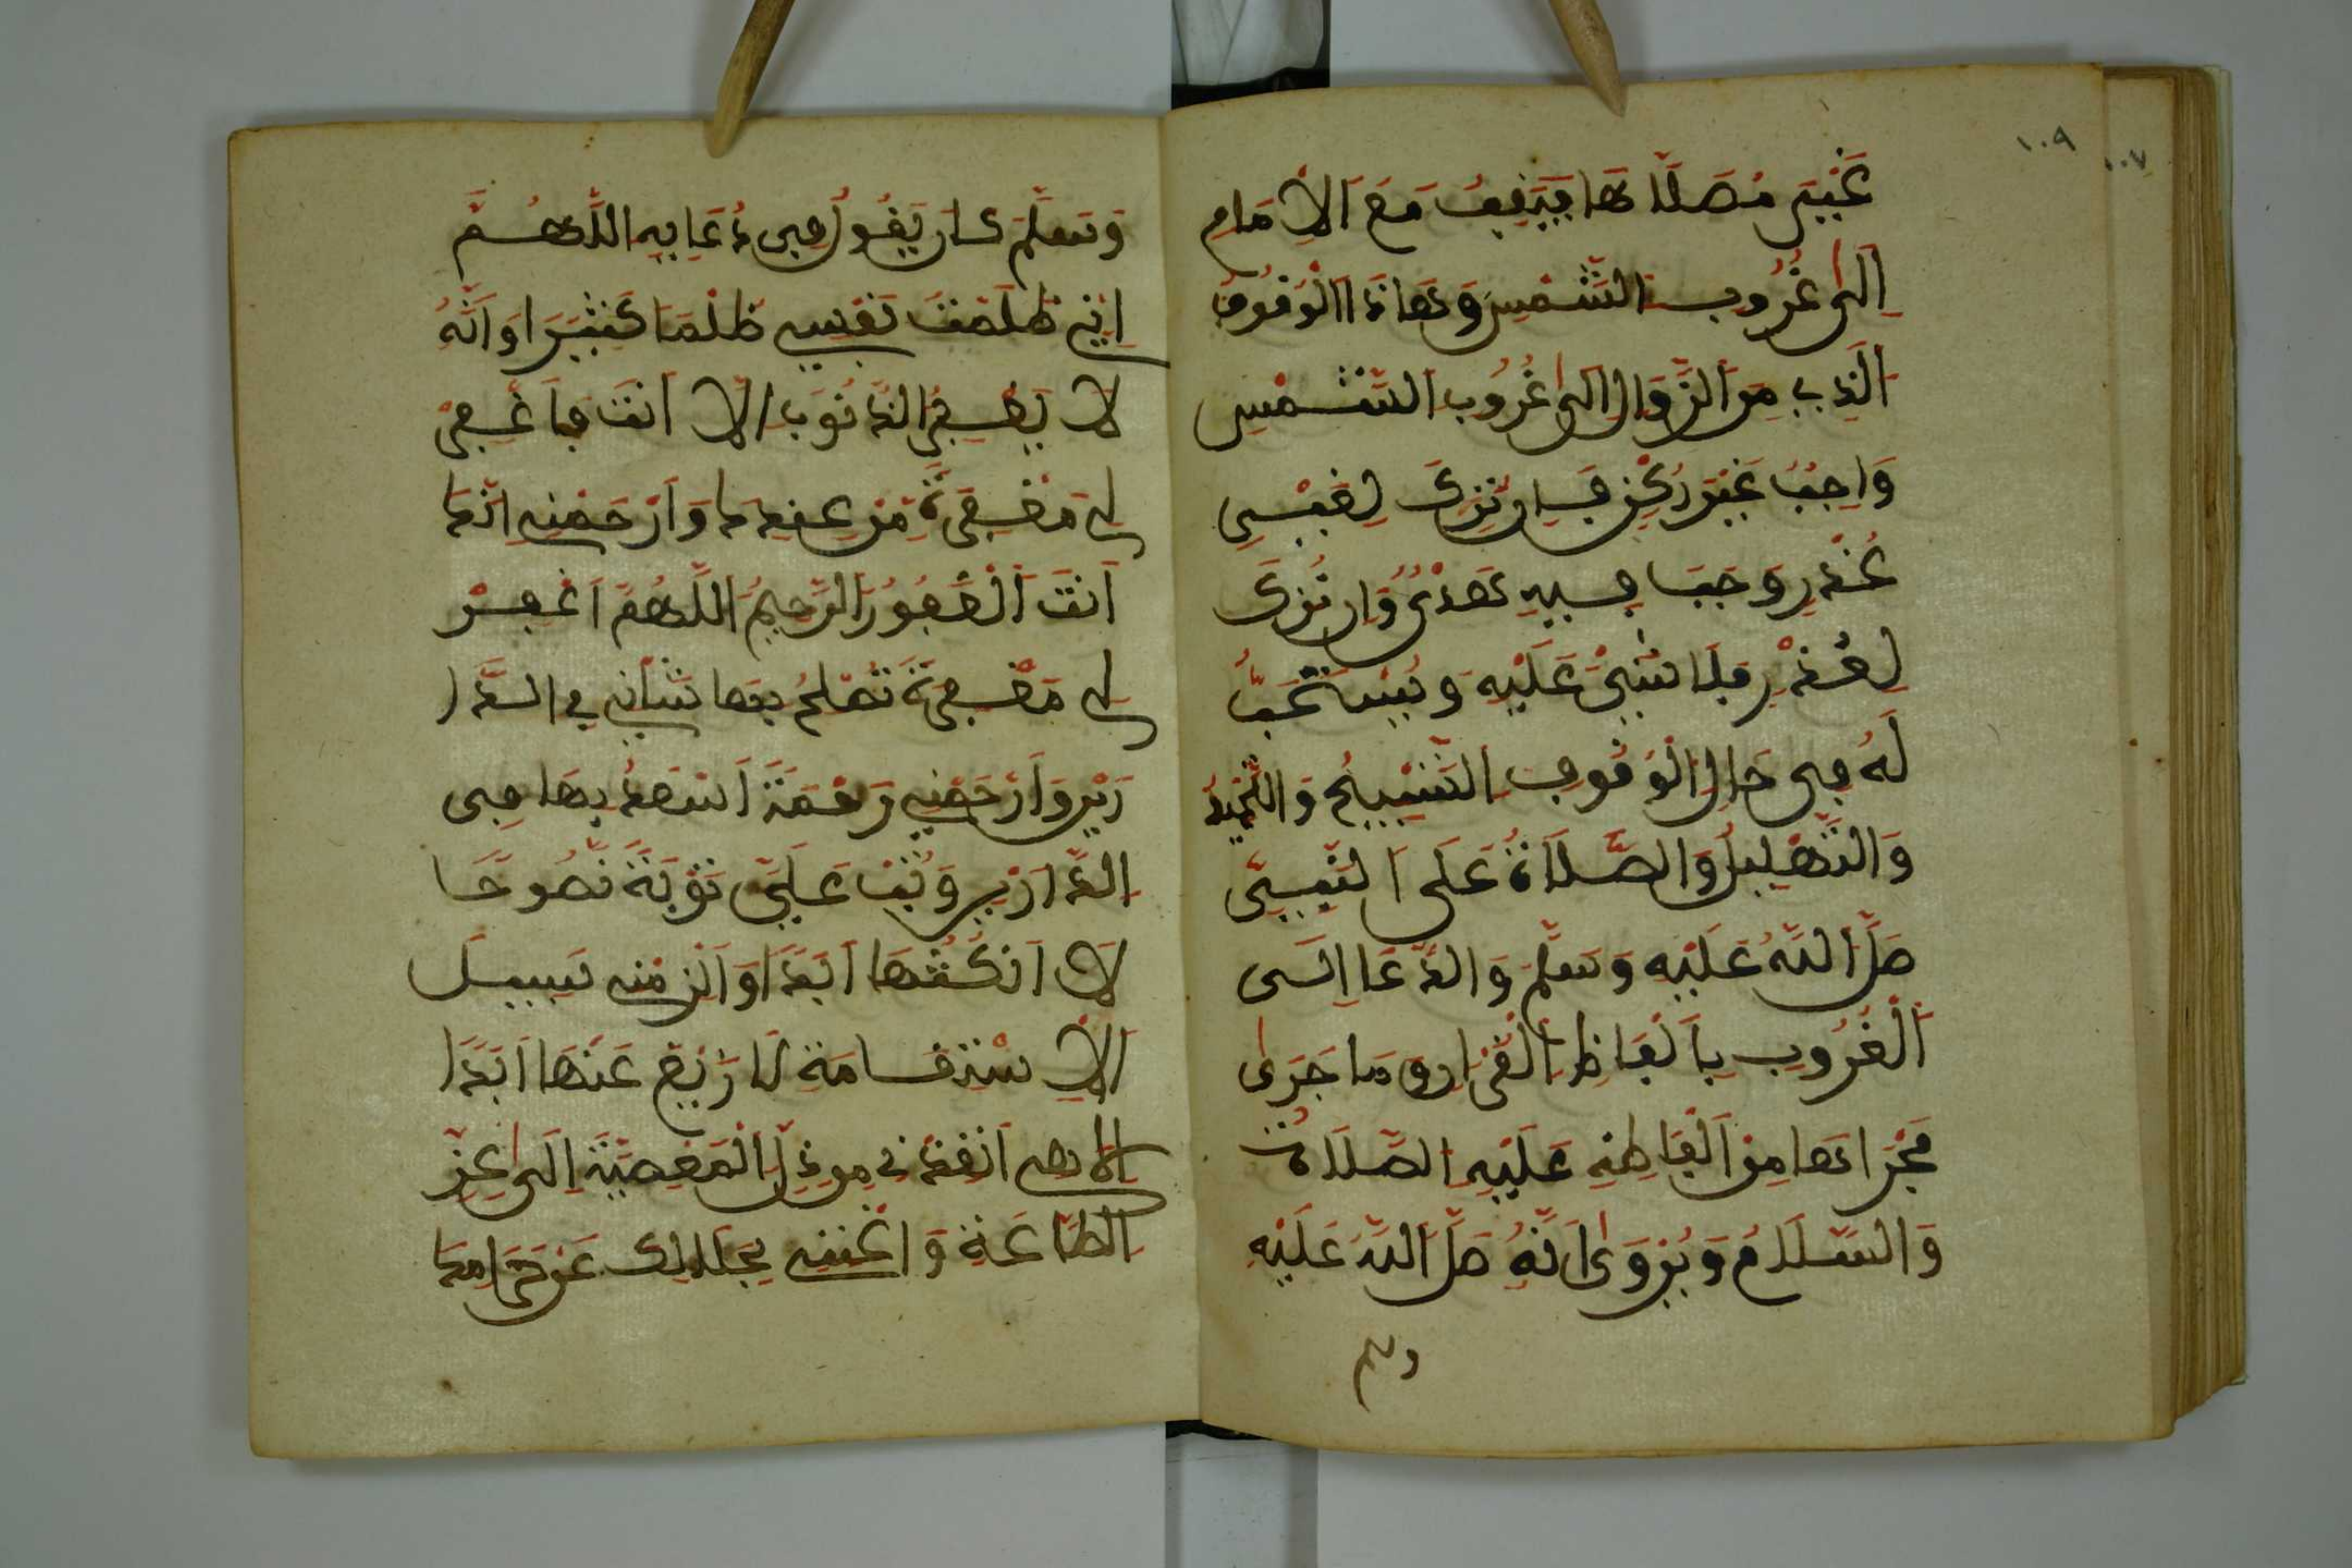 ١٠٩
١٠٧
غَيْرَ مُصَلَّاهَا فَيَقِفُ مَعَ الْاِمَامِ
اِلَى غُرُوبِ الشَّمْسِ وَهَاذَا الْوُقُوفُ
الَّذِي مِنَ الزَّوَالِ اِلَى غُرُوبِ الشَّمْسِ
وَاجِبٌ غَيْرُ رُكْنٍ فَاِن تَرَكَ لِغَيْرِ
عُذْرٍ وَجَبَ فِيهِ هَدْيٌ وَاِن تُرِكَ
لِعُذْرٍ فَلَا شَيْءَ عَلَيْهِ وَيُسْتَحَبُّ
لَهُ فِي حَالِ الْوُقُوفِ التَّسْبِيحُ وَالتَّحْمِيدُ
وَالتَّهْلِيلُ وَالصَّلَاةُ عَلَى النَّبِيِّ
صَلَّ اللَّهُ عَلَيْهِ وَسَلَّمَ وَالدُّعَا اِلَى
الْغُرُوبِ بِاَلْفَاظِ الْقُرْءَانِ وَمَا جَرَى
مَجْرَاهَا مِنْ اَلْفَاظِهِ عَلَيْهِ الصَّلَاةُ
وَالسَّلَامُ وَيُرْوَى اَنَّهُ صَلَّ اللَّهُ عَلَيْهِ
وسلم
وَسَلَّمَ كَانَ يَقُولُ فِي دُعَايِهِ اللَّهُمَّ
اِنِّي ظَلَمْتُ نَفْسِي ظُلْمًا كَثِيرًا وَاَنَّهُ
لَا يَغْفِرُ الذُّنُوبَ اِلَّا اَنْتَ فَاغْفِرْ
لِي مَغْفِرَةً مِنْ عِنْدِكَ وَارْحَمْنِي اِنَّكَ
اَنْتَ الْغَفُورُ الرَّحِيمُ اللَّهُمَّ اغْفِرْ
لِي مَغْفِرَةً تُصْلِحُ بِهَا شَأْنِي فِي الدَّا
رَيْنِ وَارْحَمْنِي رَحْمَةً اَسْعَدُ بِهَا فِي
الدَّارَيْنِ وَتُبْ عَلَيَّ تَوْبَةً نَصُوحًا
لَا اَنْكُثُهَا اَبَدًا وَاَلْزِمْنِي سَبِيلَ
الْاِسْتِقَامَةِ لَا اَزِيغُ عَنْهَا اَبَدًا
اِلَاهِي اَنْقِذْنِي مِن ذُلِّ الْمَعْصِيَةِ اِلَى عِزِّ
الطَّاعَةِ وَاغْنِنِي بِحَلَالِكَ عَنْ حَرَامِكَ